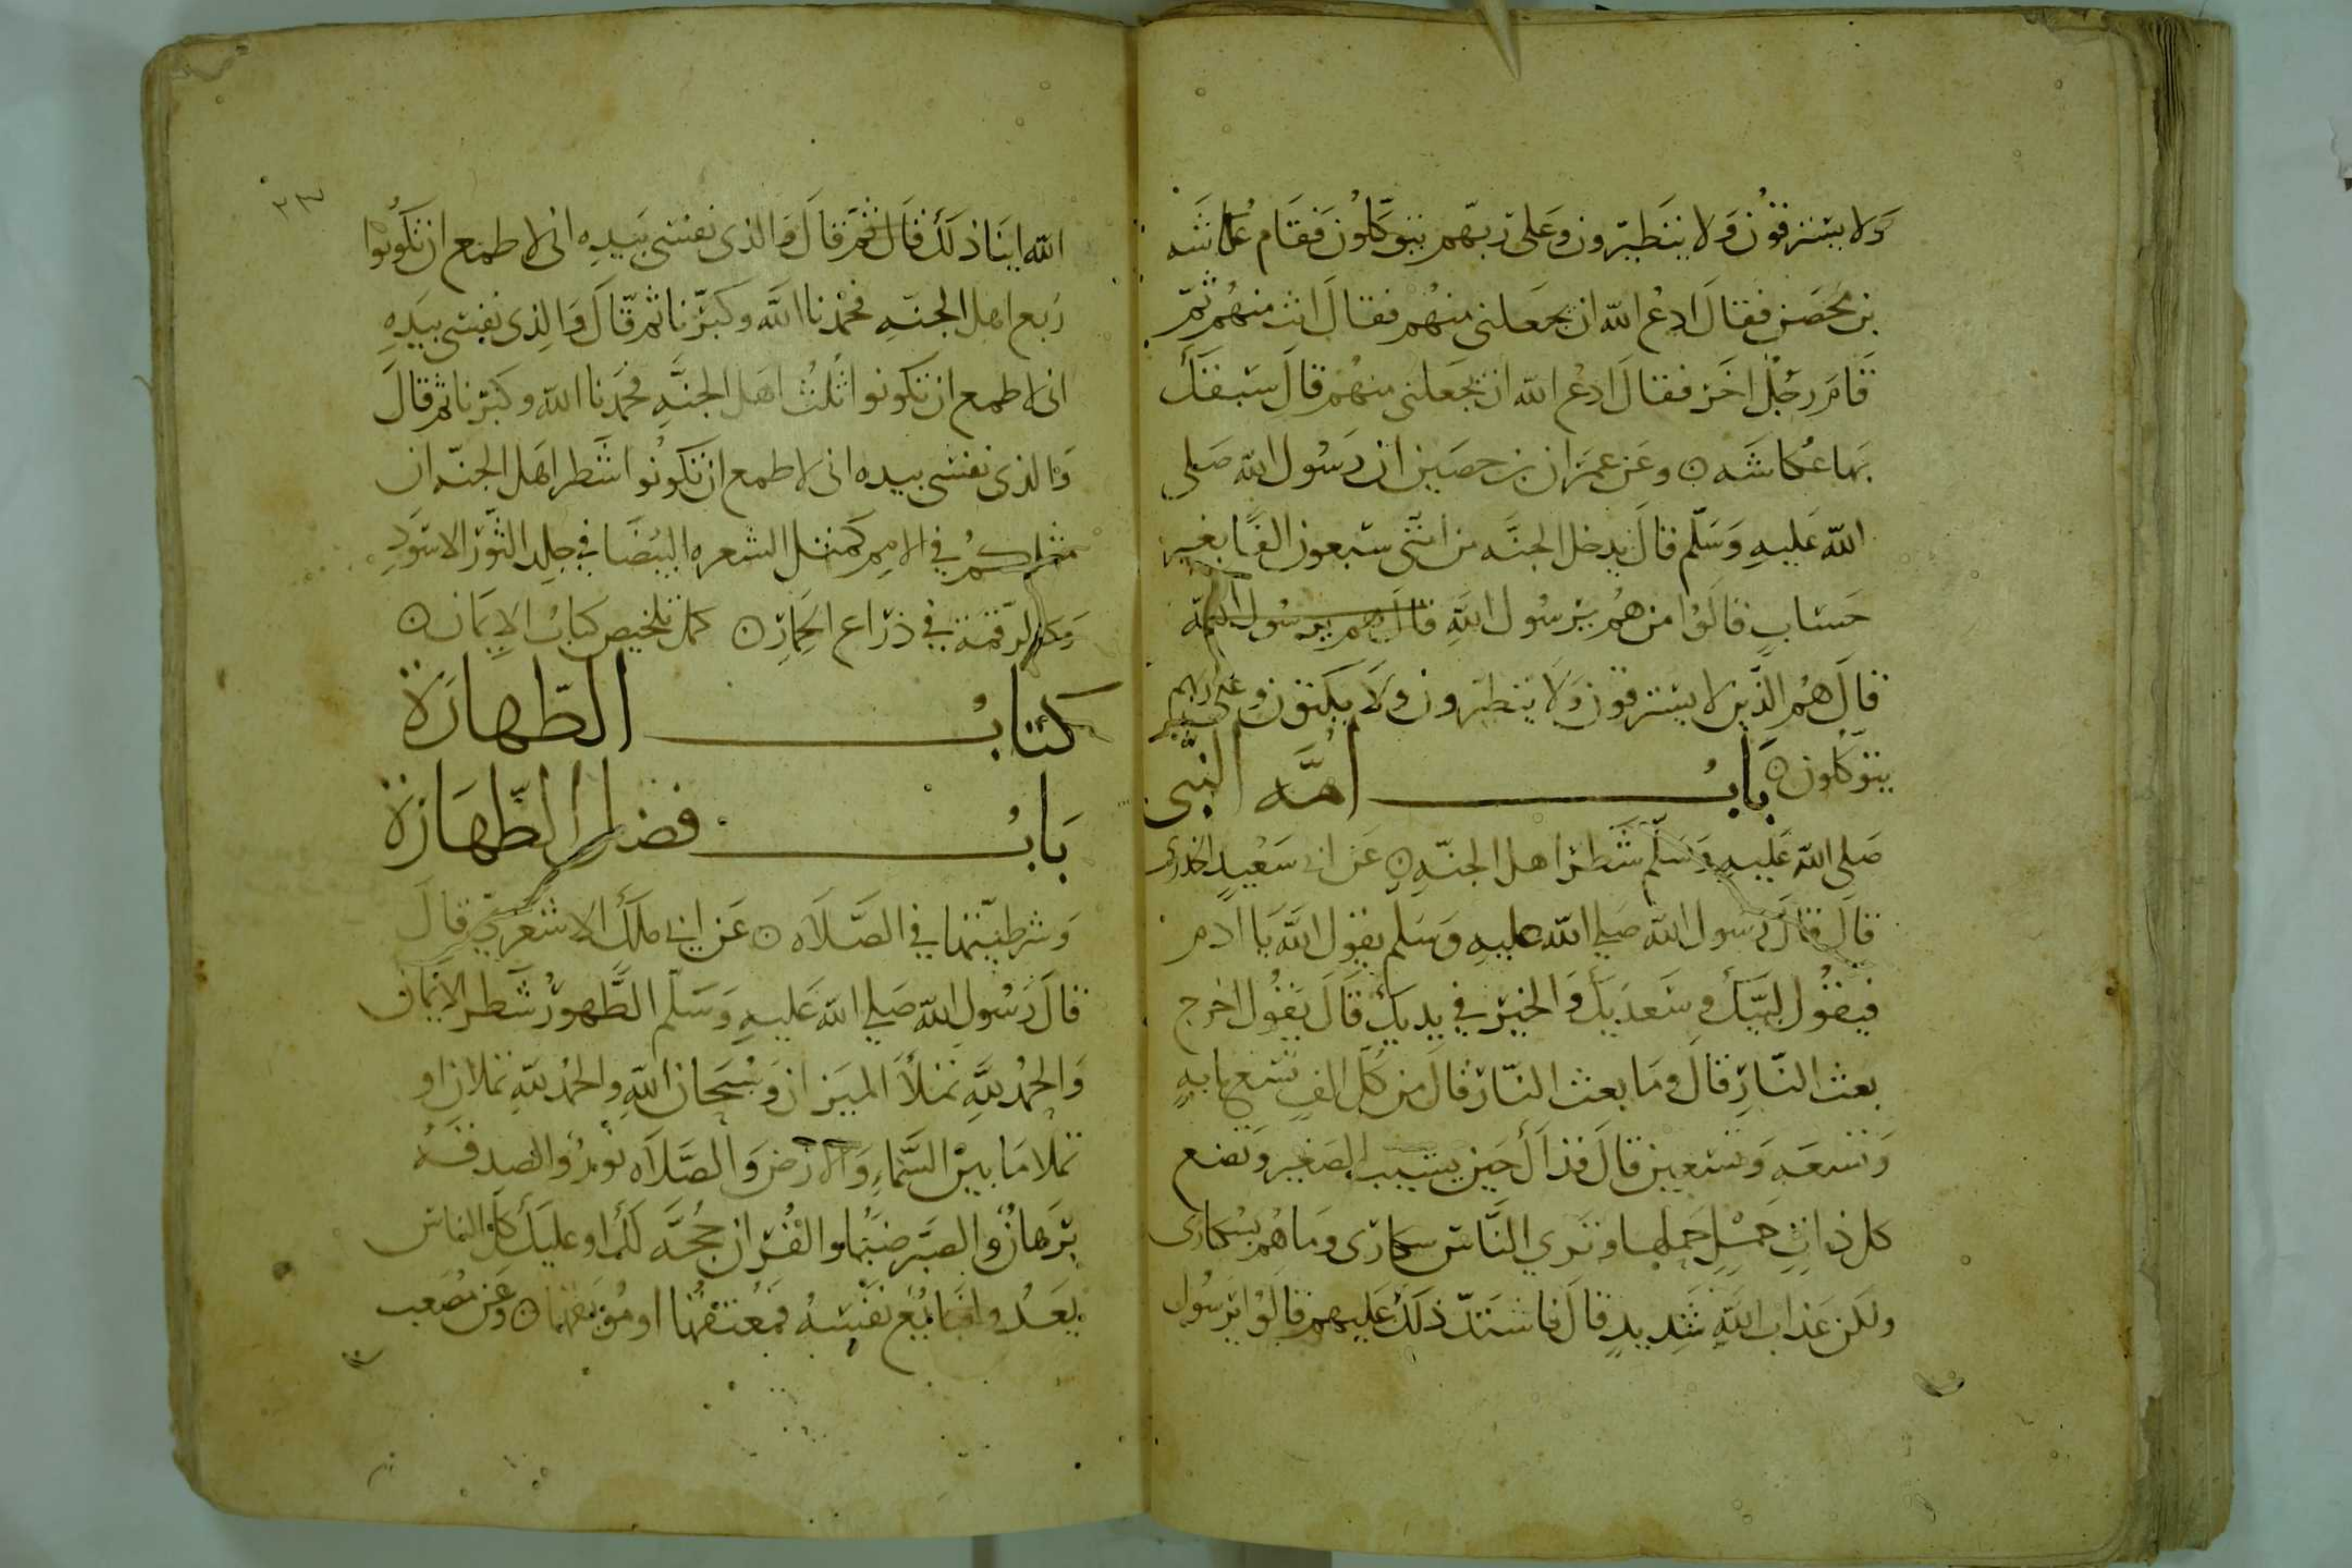 ولا يسترقون ولا يتطيرون وعلى ربهم يتوكلون فقام عكاشه
بن محصن فقال ادع الله ان يجعلني منهم فقال انت منهم ثم
قام رجل اخر فقال ادع الله ان يجعلني منهم قال سبقك
بها عكاشه ٥ وعن عمران بن حصين ان رسول الله صلى
الله عليه وسلم قال يدخل الجنه من امتى سبعون الفا بغير
حساب قالوا من هم يرسول الله قال هم يرسول الله
قال هم الذين لا يسترقون ولا يتطيرون ولا يكتوون وعلى ربهم
يتوكلون ٥ باب امه النبى
صلى الله عليه وسلم شطر اهل الجنه ٥ عن ابى سعيد الخدرى
قال قال رسول الله صلى الله عليه وسلم يقول الله يا ادم
فيقول لبيك وسعديك والخير في يديك قال يقول اخرج
بعث النار قال وما بعث النار قال من كل الف تسع مايه
وتسعه وتسعين قال فذاك حين يشيب الصغير وتضع
كل ذات حمل حملها وترى الناس سكارى وما هم بسكارى
ولكن عذاب الله شديد قال فاشتد ذلك عليهم قالوا يرسول
٢٣
الله اينا ذلك قال ثم قال والذى نفسى بيده انى لاطمع ان تكونوا
ربع اهل الجنه فحمدنا الله وكبرنا ثم قال والذى نفسى بيده
انى لاطمع ان تكونوا ثلث اهل الجنه فحمدنا الله وكبرنا ثم قال
والذى نفسى بيده انى لاطمع ان تكونوا شطر اهل الجنه ان
مثلكم في الامم كمثل الشعره البيضا في جلد الثور الاسود
وكالرقمة في ذراع الحمار ٥ كمل تلخيص كتاب الايمان ٥
كتاب الطهارة
باب فضل الطهارة
وشرطيتها في الصلاه ٥ عن ابى ملك الاشعرى قال
قال رسول الله صلى الله عليه وسلم الطهور شطر الايمان
والحمد لله تملأ الميزان وسبحان الله والحمد لله تملان او
تملا ما بين السماء والارض والصلاه نور والصدقه
برهان والصبر ضيا والقران حجة لك او عليك كل الناس
يغدوا فبايع نفسه فمعتقها او موبقها ٥ وعن مصعب